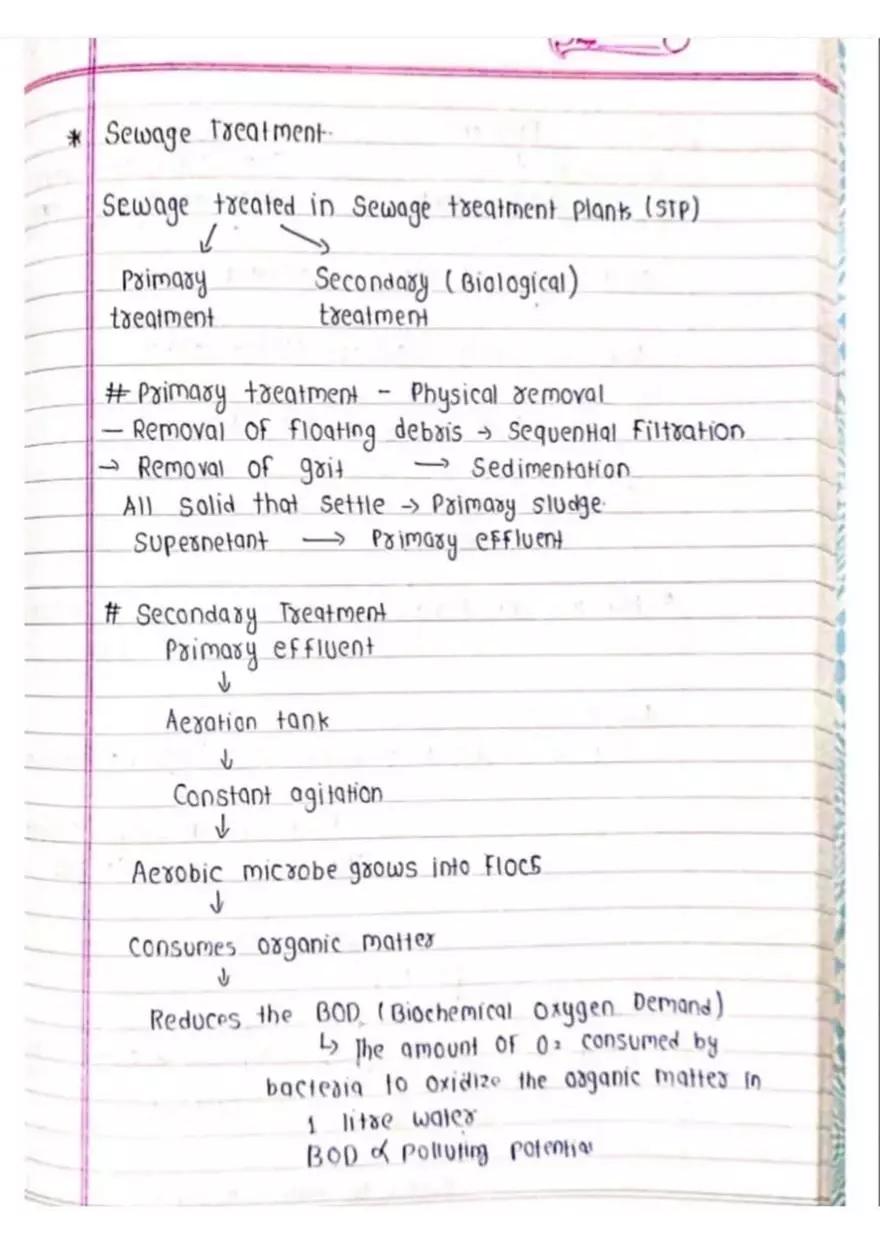 * Sewage Treatment.
Sewage treated in Sewage treatment Plants (STP)
↙ ↘
Primary Secondary (Biological)
treatment treatment
# Primary treatment - Physical removal
- Removal of floating debris → Sequential Filtration
→ Removal of grit → Sedimentation
All Solid that Settle → Primary sludge.
Supernetant → Primary effluent
# Secondary Treatment
Primary effluent
↓
Aeration tank
↓
Constant agitation
↓
Aerobic microbe grows into Flocs
↓
Consumes organic matter
↓
Reduces the BOD (Biochemical Oxygen Demand)
↳ The amount of O2 consumed by
bacteria to oxidize the organic matter in
1 litre water
BOD ∝ Polluting potential